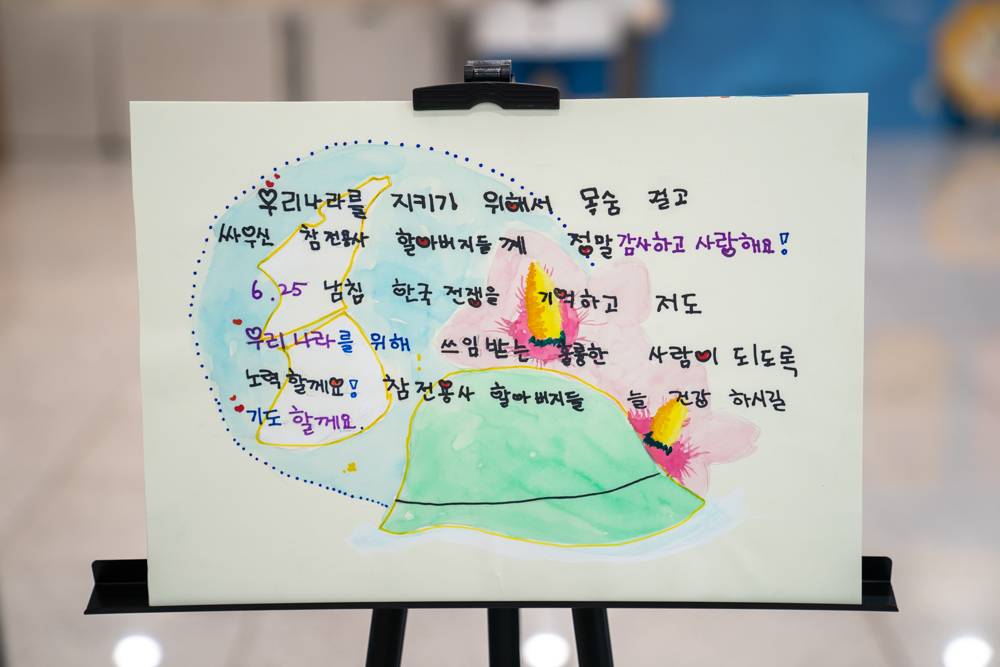 우리나라를 지키기 위해서 목숨 걸고
싸우신 참전용사 할아버지들 께 정말 감사하고 사랑해요!
6.25 남침 한국 전쟁을 기억하고 저도
우리 나라를 위해 쓰임 받는 훌륭한 사람이 되도록
노력 할께요! 참전용사 할아버지들 늘 건강 하시길
기도 할께요.